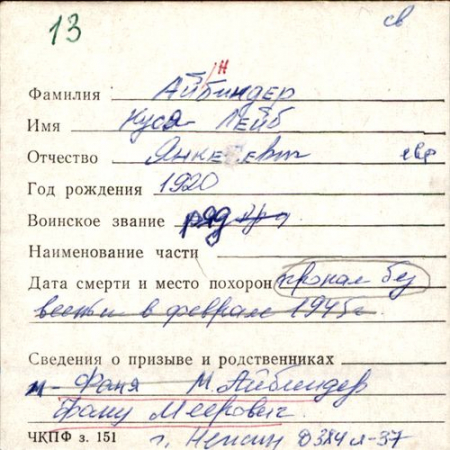 13 св
н
Фамилия Айбиндер
Имя Нуся Лейб
Отчество Янкелевич евр
Год рождения 1920
Воинское звание ряд
Наименование части
Дата смерти и место похорон пропал без
вести в феврале 1945 г
Сведения о призыве и родственниках
м- Фаня М. Айбиндер
Фаму Меерович
ЧКПФ з. 151 г. Нежин D384 л-37